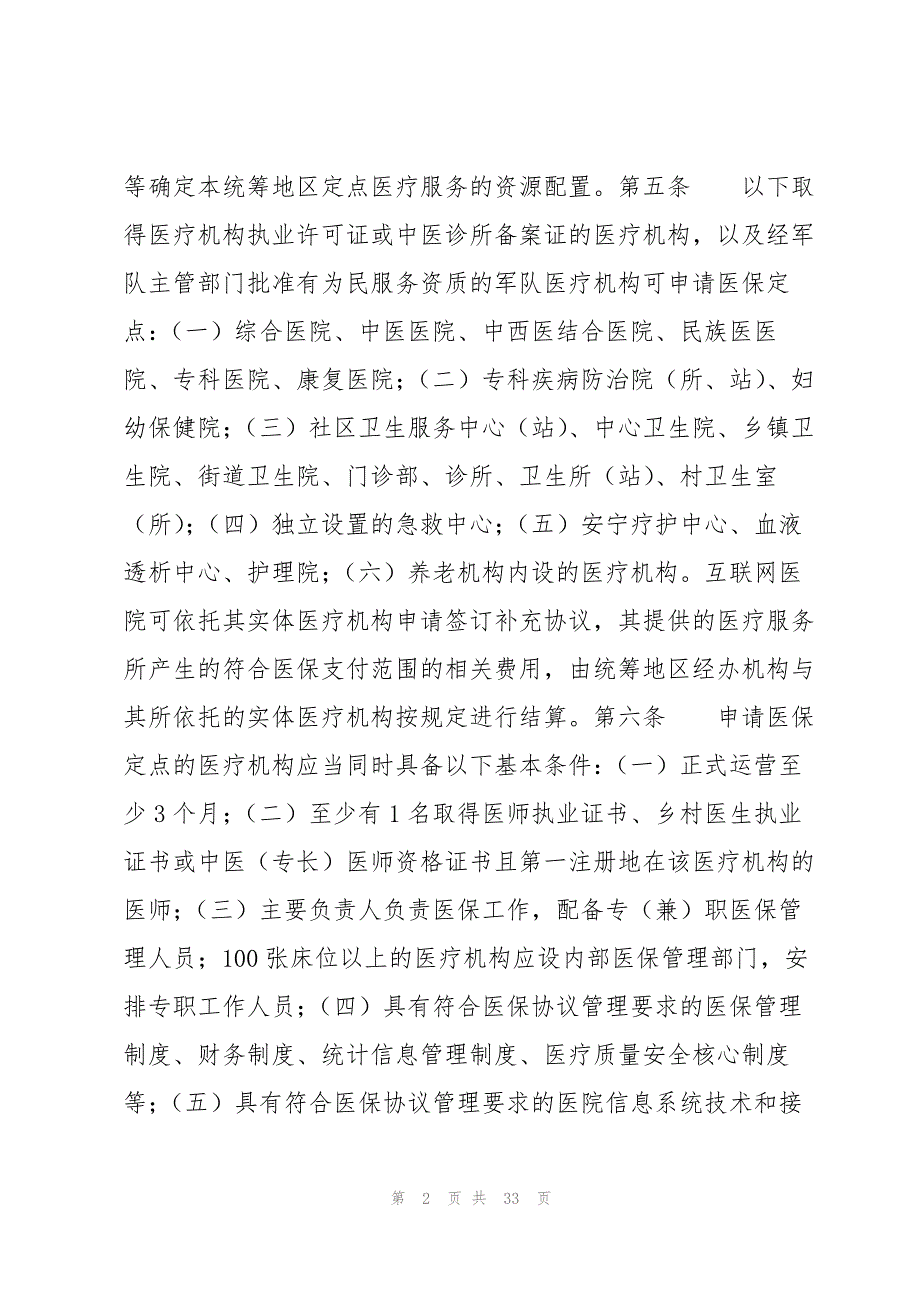 等确定本统筹地区定点医疗服务的资源配置。第五条　　以下取
得医疗机构执业许可证或中医诊所备案证的医疗机构，以及经军
队主管部门批准有为民服务资质的军队医疗机构可申请医保定
点：（一）综合医院、中医医院、中西医结合医院、民族医医
院、专科医院、康复医院；（二）专科疾病防治院（所、站）、妇
幼保健院；（三）社区卫生服务中心（站）、中心卫生院、乡镇卫
生院、街道卫生院、门诊部、诊所、卫生所（站）、村卫生室
（所）；（四）独立设置的急救中心；（五）安宁疗护中心、血液
透析中心、护理院；（六）养老机构内设的医疗机构。互联网医
院可依托其实体医疗机构申请签订补充协议，其提供的医疗服务
所产生的符合医保支付范围的相关费用，由统筹地区经办机构与
其所依托的实体医疗机构按规定进行结算。第六条　　申请医保
定点的医疗机构应当同时具备以下基本条件：（一）正式运营至
少3个月；（二）至少有1名取得医师执业证书、乡村医生执业
证书或中医（专长）医师资格证书且第一注册地在该医疗机构的
医师；（三）主要负责人负责医保工作，配备专（兼）职医保管
理人员；100张床位以上的医疗机构应设内部医保管理部门，安
排专职工作人员；（四）具有符合医保协议管理要求的医保管理
制度、财务制度、统计信息管理制度、医疗质量安全核心制度
等；（五）具有符合医保协议管理要求的医院信息系统技术和接
第 2 页 共 33 页